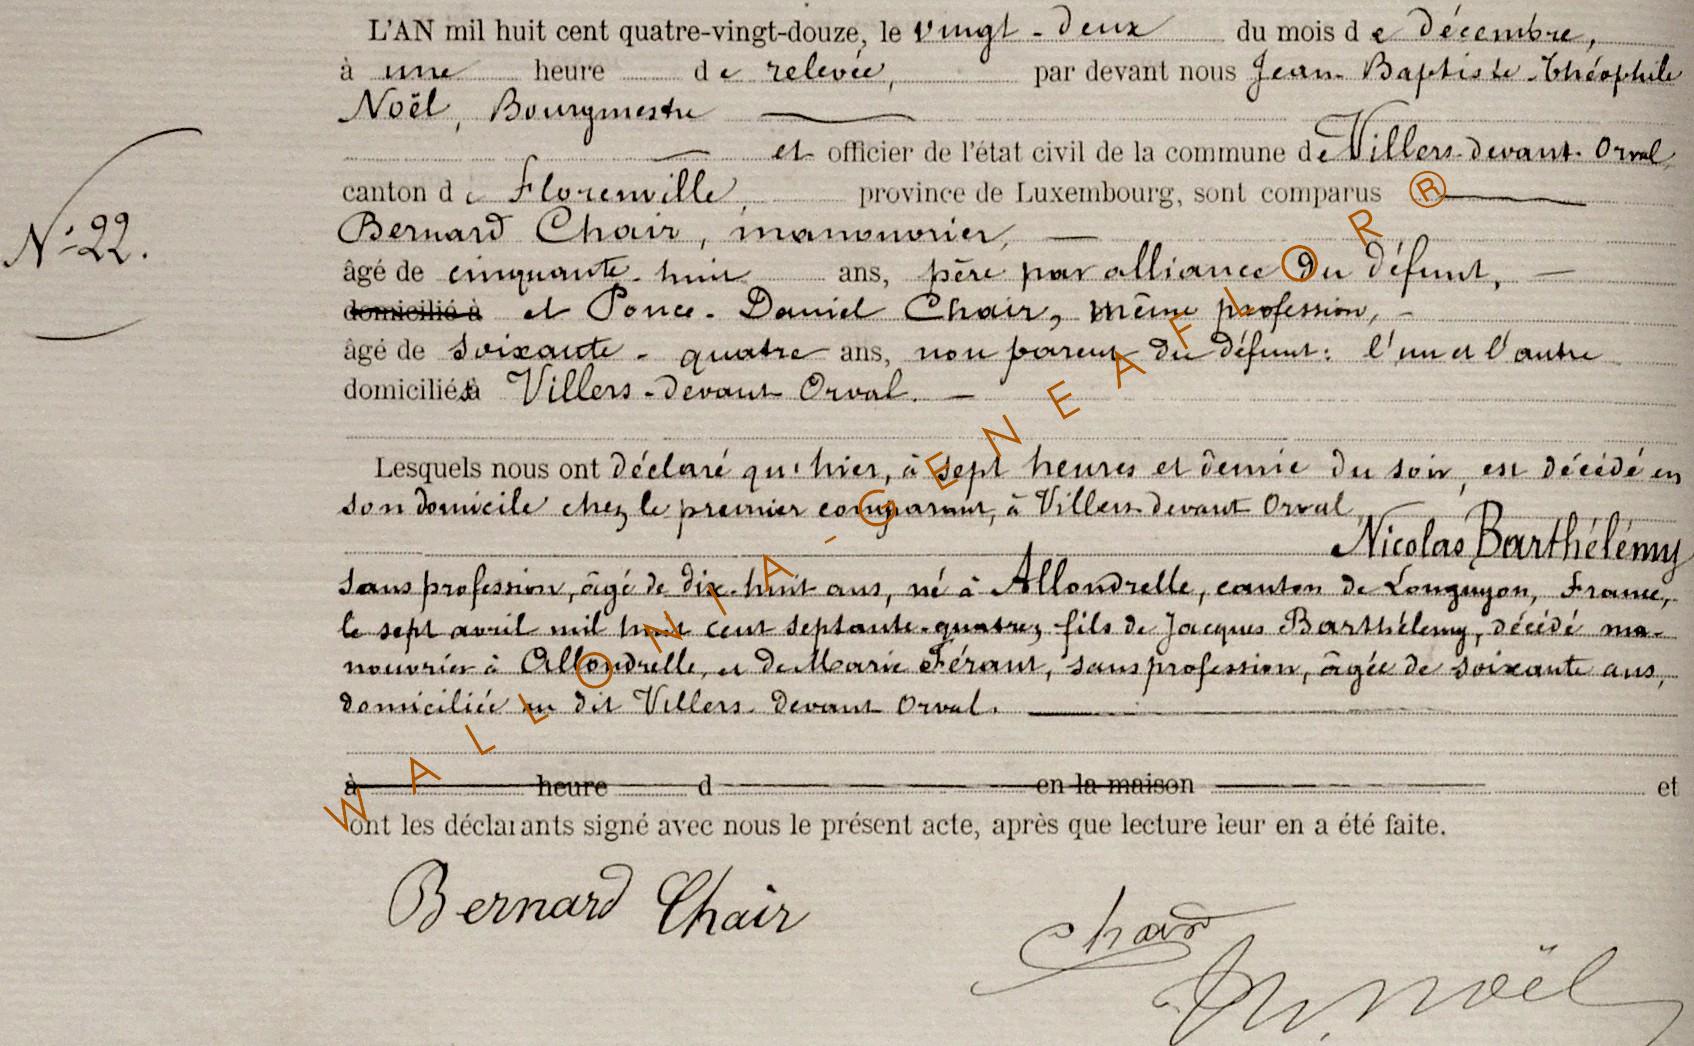 L'AN mil huit cent quatre-vingt-douze, le vingt-deux du mois de décembre,
à une heure de relevée, par devant nous Jean-Baptiste-Théophile
Noël, Bourgmestre
et officier de l'état civil de la commune de Villers-devant-Orval,
canton de Florenville, province de Luxembourg, sont comparus
N° 22.
Bernard Chair, manouvrier,
âgé de cinquante-huit ans, père par alliance du défunt,
domicilié à et Ponce-Daniel Chair, même profession,
âgé de soixante-quatre ans, non parent du défunt: l'un et l'autre
domiciliés à Villers-devant-Orval.
Lesquels nous ont déclaré qu'hier, à sept heures et demie du soir, est décédé en
son domicile chez le premier comparant, à Villers-devant-Orval
Nicolas Barthélémy
sans profession, âgé de dix-huit ans, né à Allondrelle, canton de Longuyon, France,
le sept avril mil huit cent septante-quatre, fils de Jacques Barthélemy, décédé ma-
nouvrier à Allondrelle, et de Marie Férant, sans profession, âgée de soixante ans,
domiciliée au dit Villers-devant-Orval.
à heure d en la maison et
ont les déclarants signé avec nous le présent acte, après que lecture leur en a été faite.
Bernard Chair
Chair
Noël
WALLONIA-GENEAFLOR®